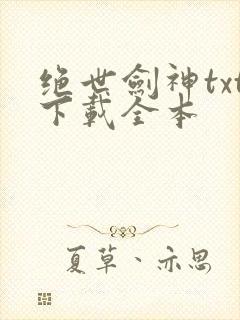 绝世劍神txt
下載全本
夏草、亦思